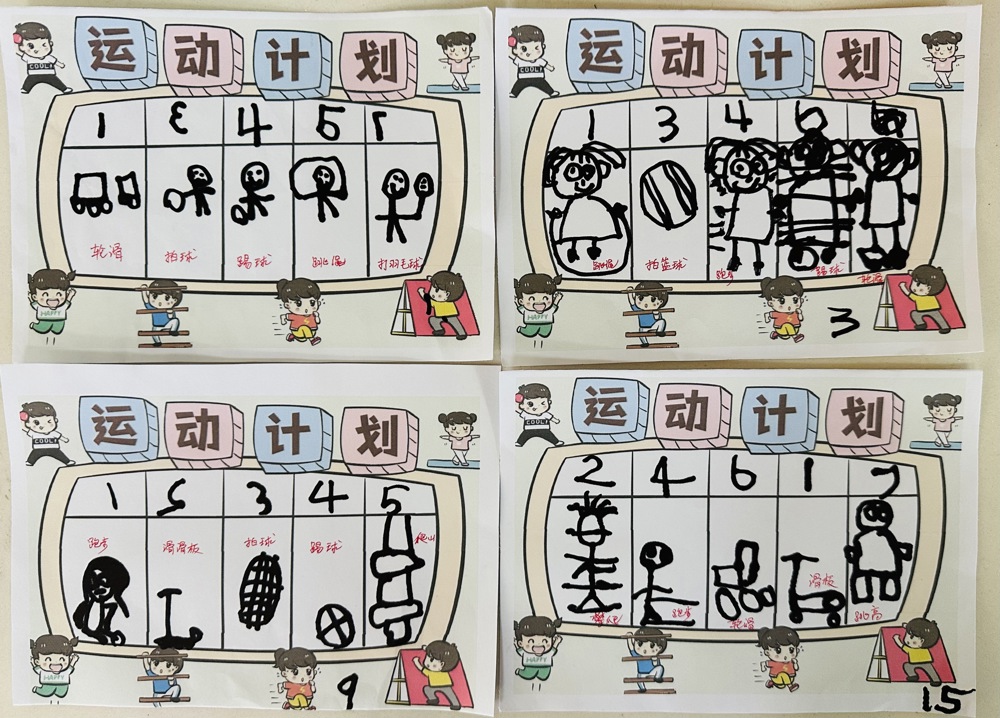 运动计划
COOL!
1 3 4 5 2
轮滑 拍球 踢球 跳绳 打羽毛球
HAPPY
1
运动计划
COOL!
1 3 4 5 6
跳绳 拍篮球 跑步 踢球 轮滑
HAPPY
3
运动计划
COOL!
1 2 3 4 5
跑步 滑滑板 拍球 踢球 爬山
HAPPY
9
运动计划
COOL!
2 4 6 1 7
攀爬 跑步 轮滑 滑板 跳高
HAPPY
15